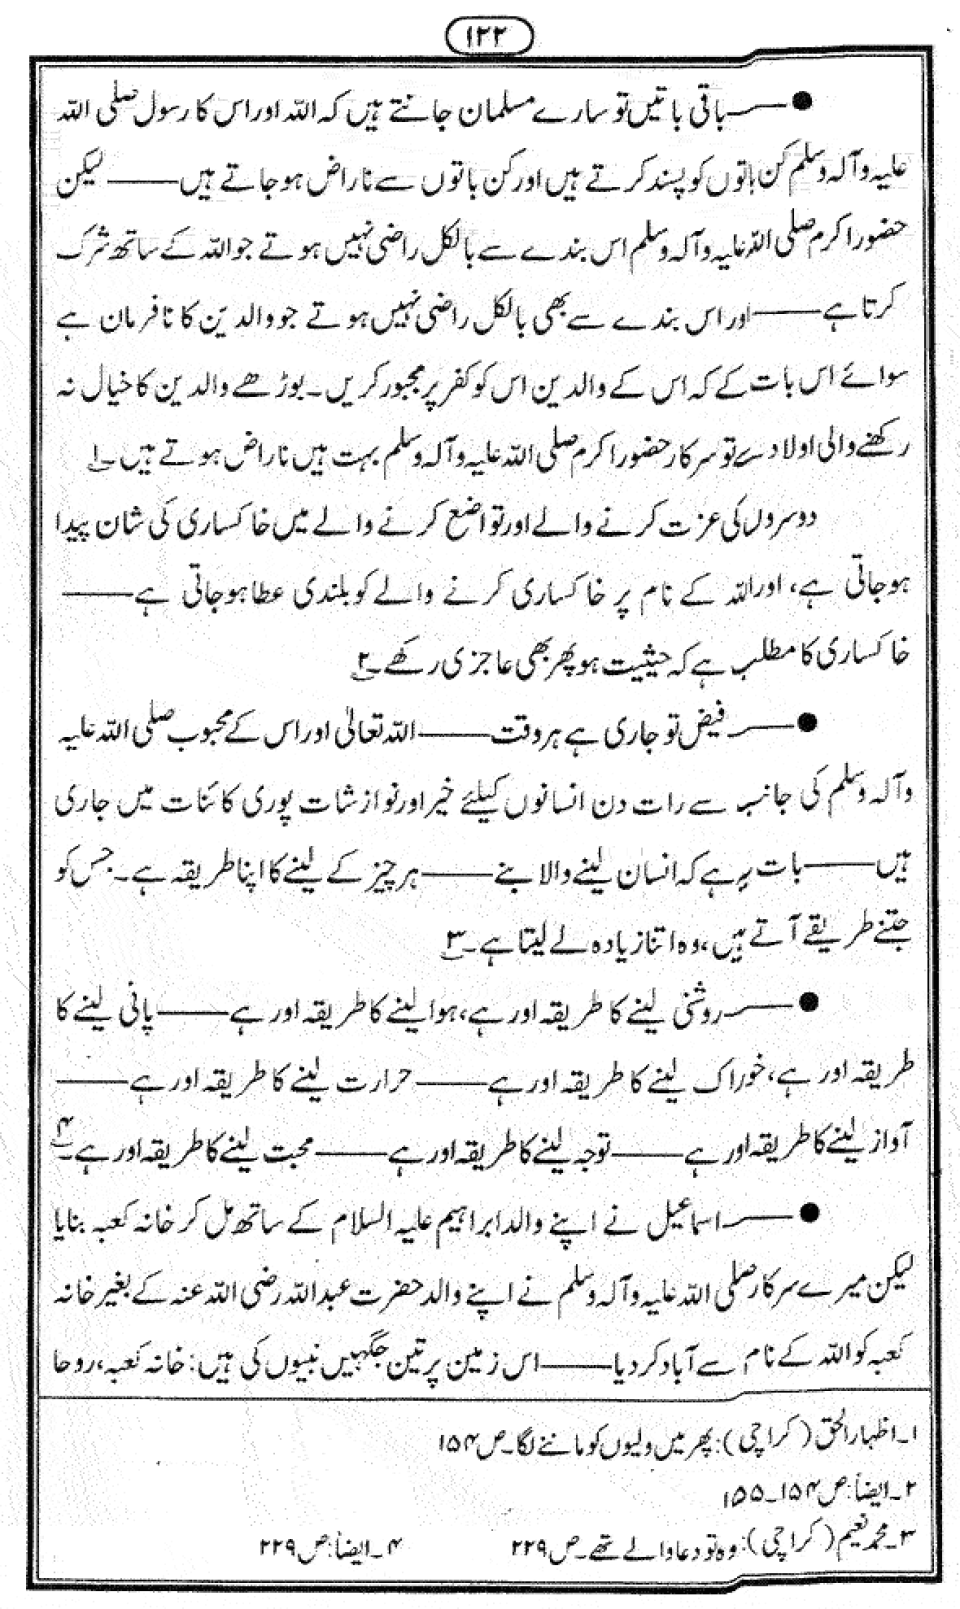 ۱۲۲
●——باقی باتیں تو سارے مسلمان جانتے ہیں کہ اللہ اور اس کا رسول صلی اللہ
علیہ وآلہ وسلم کن باتوں کو پسند کرتے ہیں اور کن باتوں سے ناراض ہوجاتے ہیں——لیکن
حضور اکرم صلی اللہ علیہ وآلہ وسلم اس بندے سے بالکل راضی نہیں ہوتے جو اللہ کے ساتھ شرک
کرتا ہے——اور اس بندے سے بھی بالکل راضی نہیں ہوتے جو والدین کا نافرمان ہے
سوائے اس بات کے کہ اس کے والدین اس کو کفر پر مجبور کریں۔ بوڑھے والدین کا خیال نہ
رکھنے والی اولاد سے تو سرکار حضور اکرم صلی اللہ علیہ وآلہ وسلم بہت ہیں ناراض ہوتے ہیں۔۱
دوسروں کی عزت کرنے والے اور تواضع کرنے والے میں خاکساری کی شان پیدا
ہوجاتی ہے، اور اللہ کے نام پر خاکساری کرنے والے کو بلندی عطا ہوجاتی ہے——
خاکساری کا مطلب ہے کہ حیثیت ہو پھر بھی عاجزی رکھے۔۲
●——فیض تو جاری ہے ہر وقت——اللہ تعالیٰ اور اس کے محبوب صلی اللہ علیہ
وآلہ وسلم کی جانب سے رات دن انسانوں کیلئے خیر اور نوازشات پوری کائنات میں جاری
ہیں——بات یہ ہے کہ انسان لینے والا بنے——ہر چیز کے لینے کا اپنا طریقہ ہے۔ جس کو
جتنے طریقے آتے ہیں، وہ اتنا زیادہ لے لیتا ہے۔۳
●——روشنی لینے کا طریقہ اور ہے، ہوا لینے کا طریقہ اور ہے——پانی لینے کا
طریقہ اور ہے، خوراک لینے کا طریقہ اور ہے——حرارت لینے کا طریقہ اور ہے——
آواز لینے کا طریقہ اور ہے——توجہ لینے کا طریقہ اور ہے——محبت لینے کا طریقہ اور ہے۔۴
●——اسماعیل نے اپنے والد ابراہیم علیہ السلام کے ساتھ مل کر خانہ کعبہ بنایا
لیکن میرے سرکار صلی اللہ علیہ وآلہ وسلم نے اپنے والد حضرت عبداللہ رضی اللہ عنہ کے بغیر خانہ
کعبہ کو اللہ کے نام سے آباد کردیا——اس زمین پر تین جگہیں نبیوں کی ہیں: خانہ کعبہ، روحا
۱۔اظہار الحق (کراچی): پھر میں ولیوں کو ماننے لگا۔ص۱۵۴
۲۔ایضاً: ص۱۵۴۔۱۵۵
۳۔محمد نعیم (کراچی): وہ تو دعا والے تھے۔ص۲۲۹ ۴۔ایضاً: ص۲۲۹